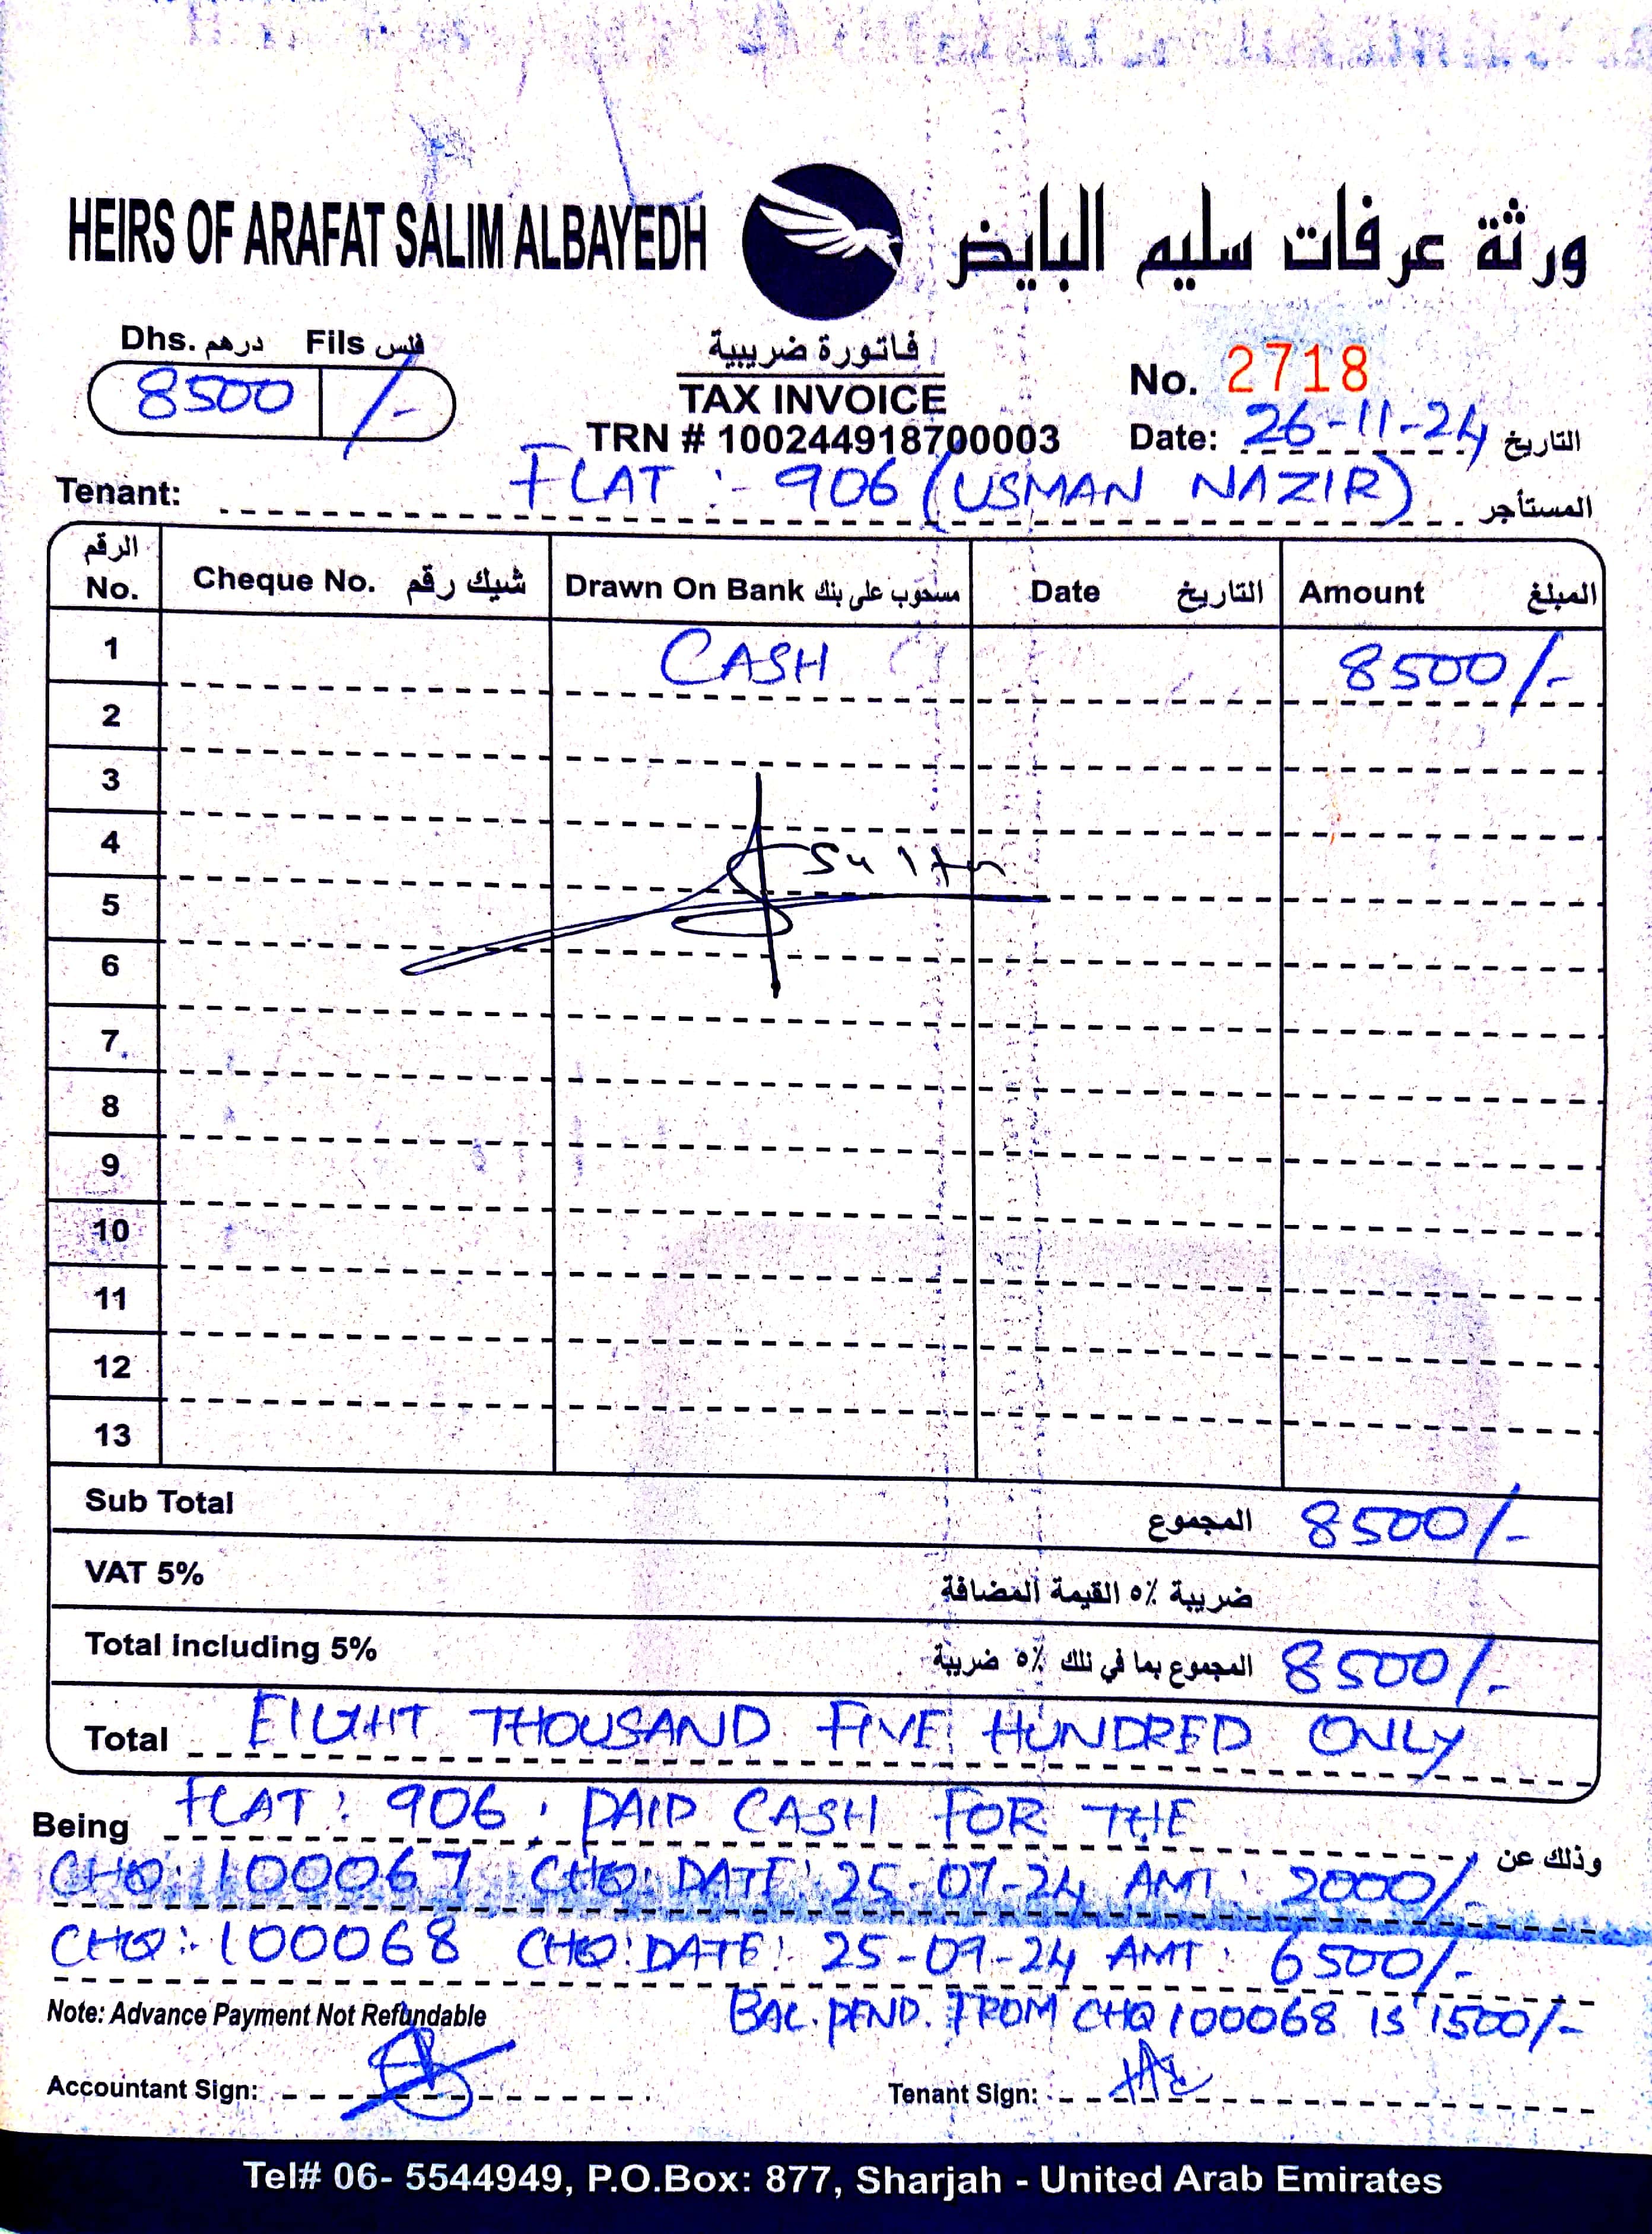 HEIRS OF ARAFAT SALIM ALBAYEDH ورثة عرفات سليم البايض
Dhs. درهم Fils فلس
8500 /-
فاتورة ضريبية
TAX INVOICE
TRN # 100244918700003
No. 2718
Date: 26-11-24 التاريخ
Tenant: FLAT :- 906 (USMAN NAZIR) المستأجر
الرقم No. Cheque No. شيك رقم Drawn On Bank مسحوب على بنك Date التاريخ Amount المبلغ
1 CASH 8500/-
2
3
4
5
6
7
8
9
10
11
12
13
Sub Total المجموع 8500/-
VAT 5% ضريبة ٥٪ القيمة المضافة
Total including 5% المجموع بما في ذلك ٥٪ ضريبة 8500/-
Total EIGHT THOUSAND FIVE HUNDRED ONLY
Being FLAT: 906, PAID CASH FOR THE وذلك عن
CHQ: 100067 CHQ: DATE: 25-07-24 AMT: 2000/-
CHQ:- 100068 CHQ: DATE: 25-09-24 AMT: 6500/-
Note: Advance Payment Not Refundable BAL. PEND. FROM CHQ 100068 IS 1500/-
Accountant Sign: Tenant Sign:
Tel# 06- 5544949, P.O.Box: 877, Sharjah - United Arab Emirates